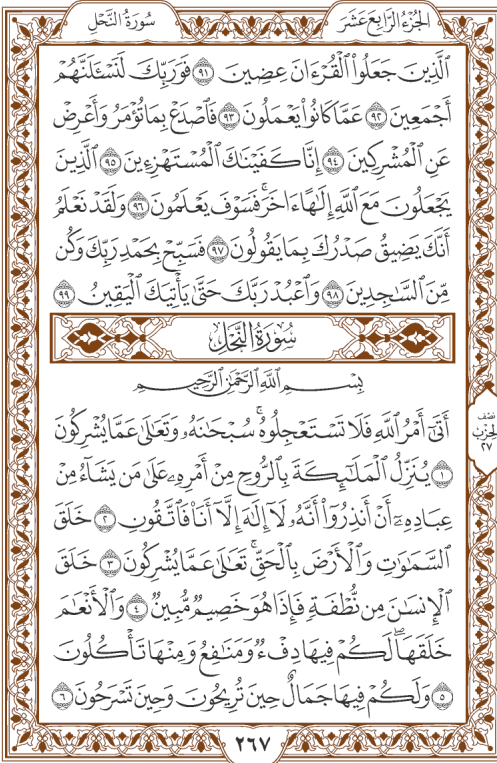 الجُزْءُ الرَّابِعَ عَشَرَ
سُورَةُ النَّحْلِ
الَّذِينَ جَعَلُوا الْقُرْءَانَ عِضِينَ ۝٩١ فَوَرَبِّكَ لَنَسْـَٔلَنَّهُمْ
أَجْمَعِينَ ۝٩٢ عَمَّا كَانُوا يَعْمَلُونَ ۝٩٣ فَاصْدَعْ بِمَا تُؤْمَرُ وَأَعْرِضْ
عَنِ الْمُشْرِكِينَ ۝٩٤ إِنَّا كَفَيْنَاكَ الْمُسْتَهْزِءِينَ ۝٩٥ الَّذِينَ
يَجْعَلُونَ مَعَ اللَّهِ إِلَٰهًا ءَاخَرَ ۚ فَسَوْفَ يَعْلَمُونَ ۝٩٦ وَلَقَدْ نَعْلَمُ
أَنَّكَ يَضِيقُ صَدْرُكَ بِمَا يَقُولُونَ ۝٩٧ فَسَبِّحْ بِحَمْدِ رَبِّكَ وَكُن
مِّنَ السَّاجِدِينَ ۝٩٨ وَاعْبُدْ رَبَّكَ حَتَّىٰ يَأْتِيَكَ الْيَقِينُ ۝٩٩
سُورَةُ النَّحْلِ
بِسْمِ اللَّهِ الرَّحْمَٰنِ الرَّحِيمِ
أَتَىٰٓ أَمْرُ اللَّهِ فَلَا تَسْتَعْجِلُوهُ ۚ سُبْحَانَهُۥ وَتَعَالَىٰ عَمَّا يُشْرِكُونَ
۝١ يُنَزِّلُ الْمَلَٰٓئِكَةَ بِالرُّوحِ مِنْ أَمْرِهِۦ عَلَىٰ مَن يَشَآءُ مِنْ
عِبَادِهِۦٓ أَنْ أَنذِرُوٓا أَنَّهُۥ لَآ إِلَٰهَ إِلَّآ أَنَا۠ فَاتَّقُونِ ۝٢ خَلَقَ
السَّمَٰوَٰتِ وَالْأَرْضَ بِالْحَقِّ ۚ تَعَالَىٰ عَمَّا يُشْرِكُونَ ۝٣ خَلَقَ
الْإِنسَٰنَ مِن نُّطْفَةٍ فَإِذَا هُوَ خَصِيمٌ مُّبِينٌ ۝٤ وَالْأَنْعَٰمَ
خَلَقَهَا ۗ لَكُمْ فِيهَا دِفْءٌ وَمَنَافِعُ وَمِنْهَا تَأْكُلُونَ
۝٥ وَلَكُمْ فِيهَا جَمَالٌ حِينَ تُرِيحُونَ وَحِينَ تَسْرَحُونَ ۝٦
نِصْف
الحِزْب
٢٧
٢٦٧